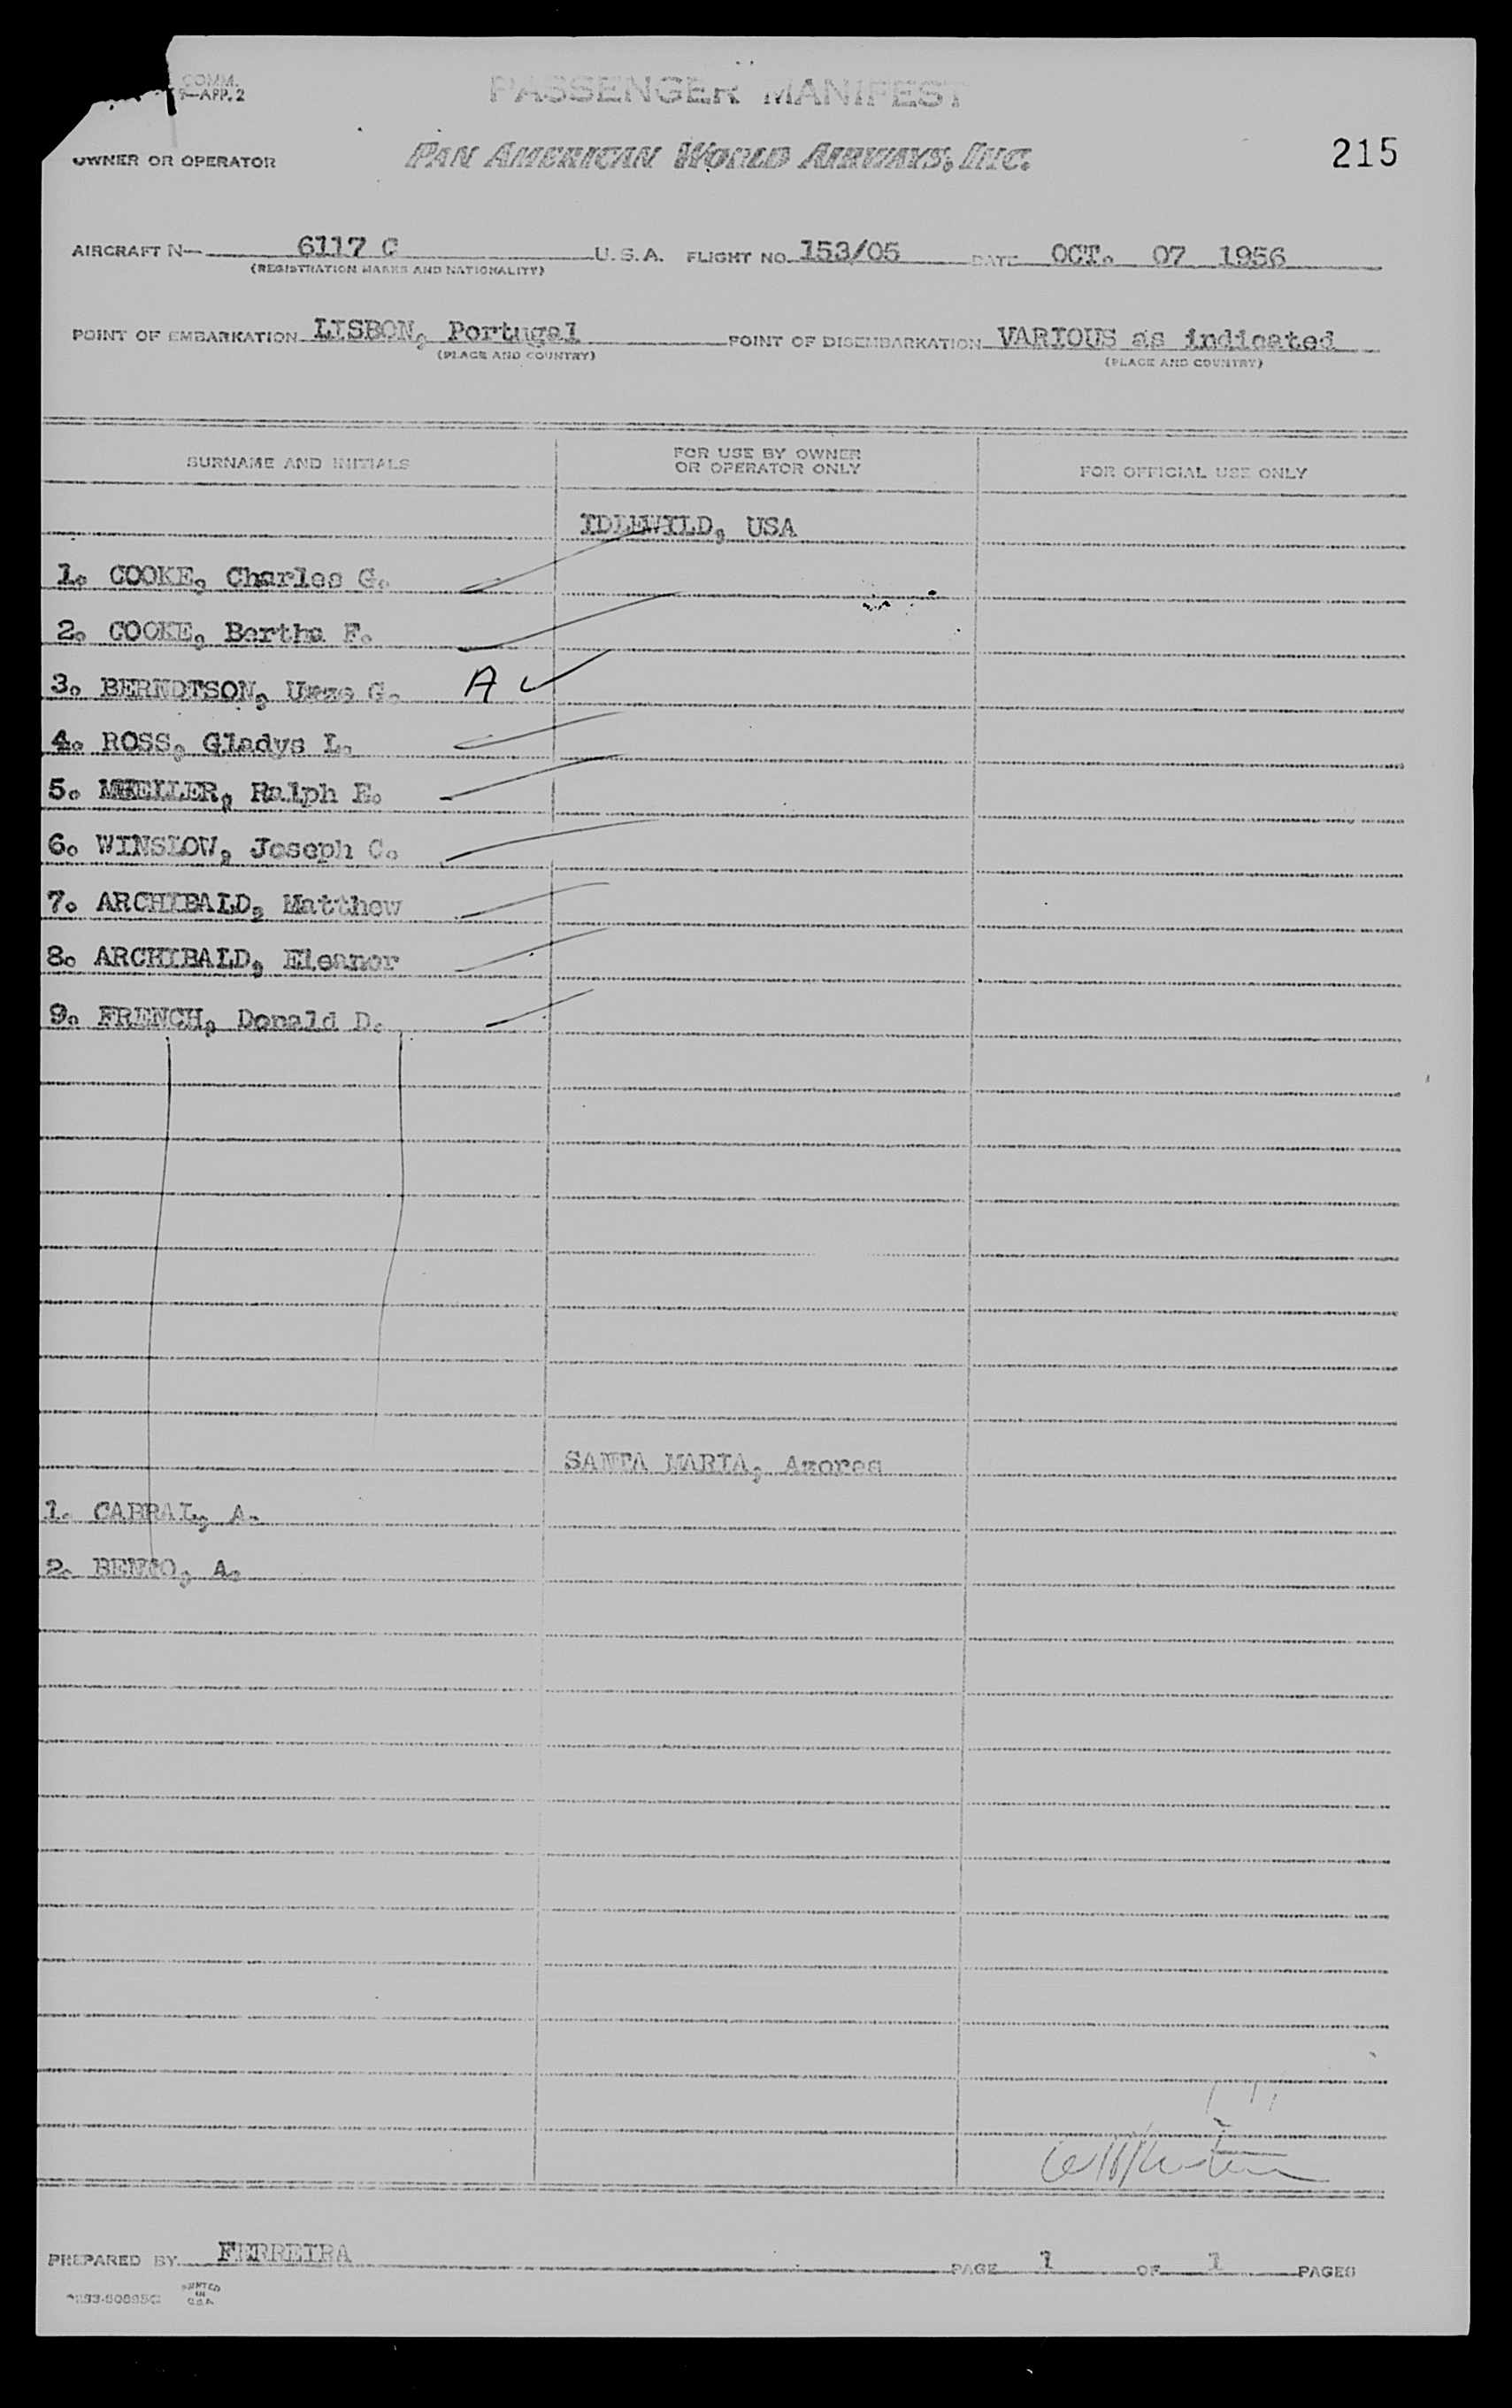 COMM.
9—APP. 2
PASSENGER MANIFEST
OWNER OR OPERATOR PAN AMERICAN WORLD AIRWAYS, INC. 215
AIRCRAFT N— 6117 C U. S. A. FLIGHT NO. 153/05 DATE OCT. 07 1956
(REGISTRATION MARKS AND NATIONALITY)
POINT OF EMBARKATION LISBON, Portugal POINT OF DISEMBARKATION VARIOUS as indicated
(PLACE AND COUNTRY) (PLACE AND COUNTRY)
SURNAME AND INITIALS FOR USE BY OWNER OR OPERATOR ONLY FOR OFFICIAL USE ONLY
IDLEWILD, USA
1. COOKE, Charles G.
2. COOKE, Bertha F.
3. BERNDTSON, G. A ✓
4. ROSS, Gladys L.
5. Ralph E.
6. WINSLOW, Joseph C.
7. ARCHIBALD, Matthew
8. ARCHIBALD, Eleanor
9. FRENCH, Donald D.
SANTA MARIA, Azores
1. CABRAL, A.
2. BENTO, A.
PREPARED BY FERREIRA PAGE 1 OF 1 PAGES
PRINTED
IN
U.S.A.